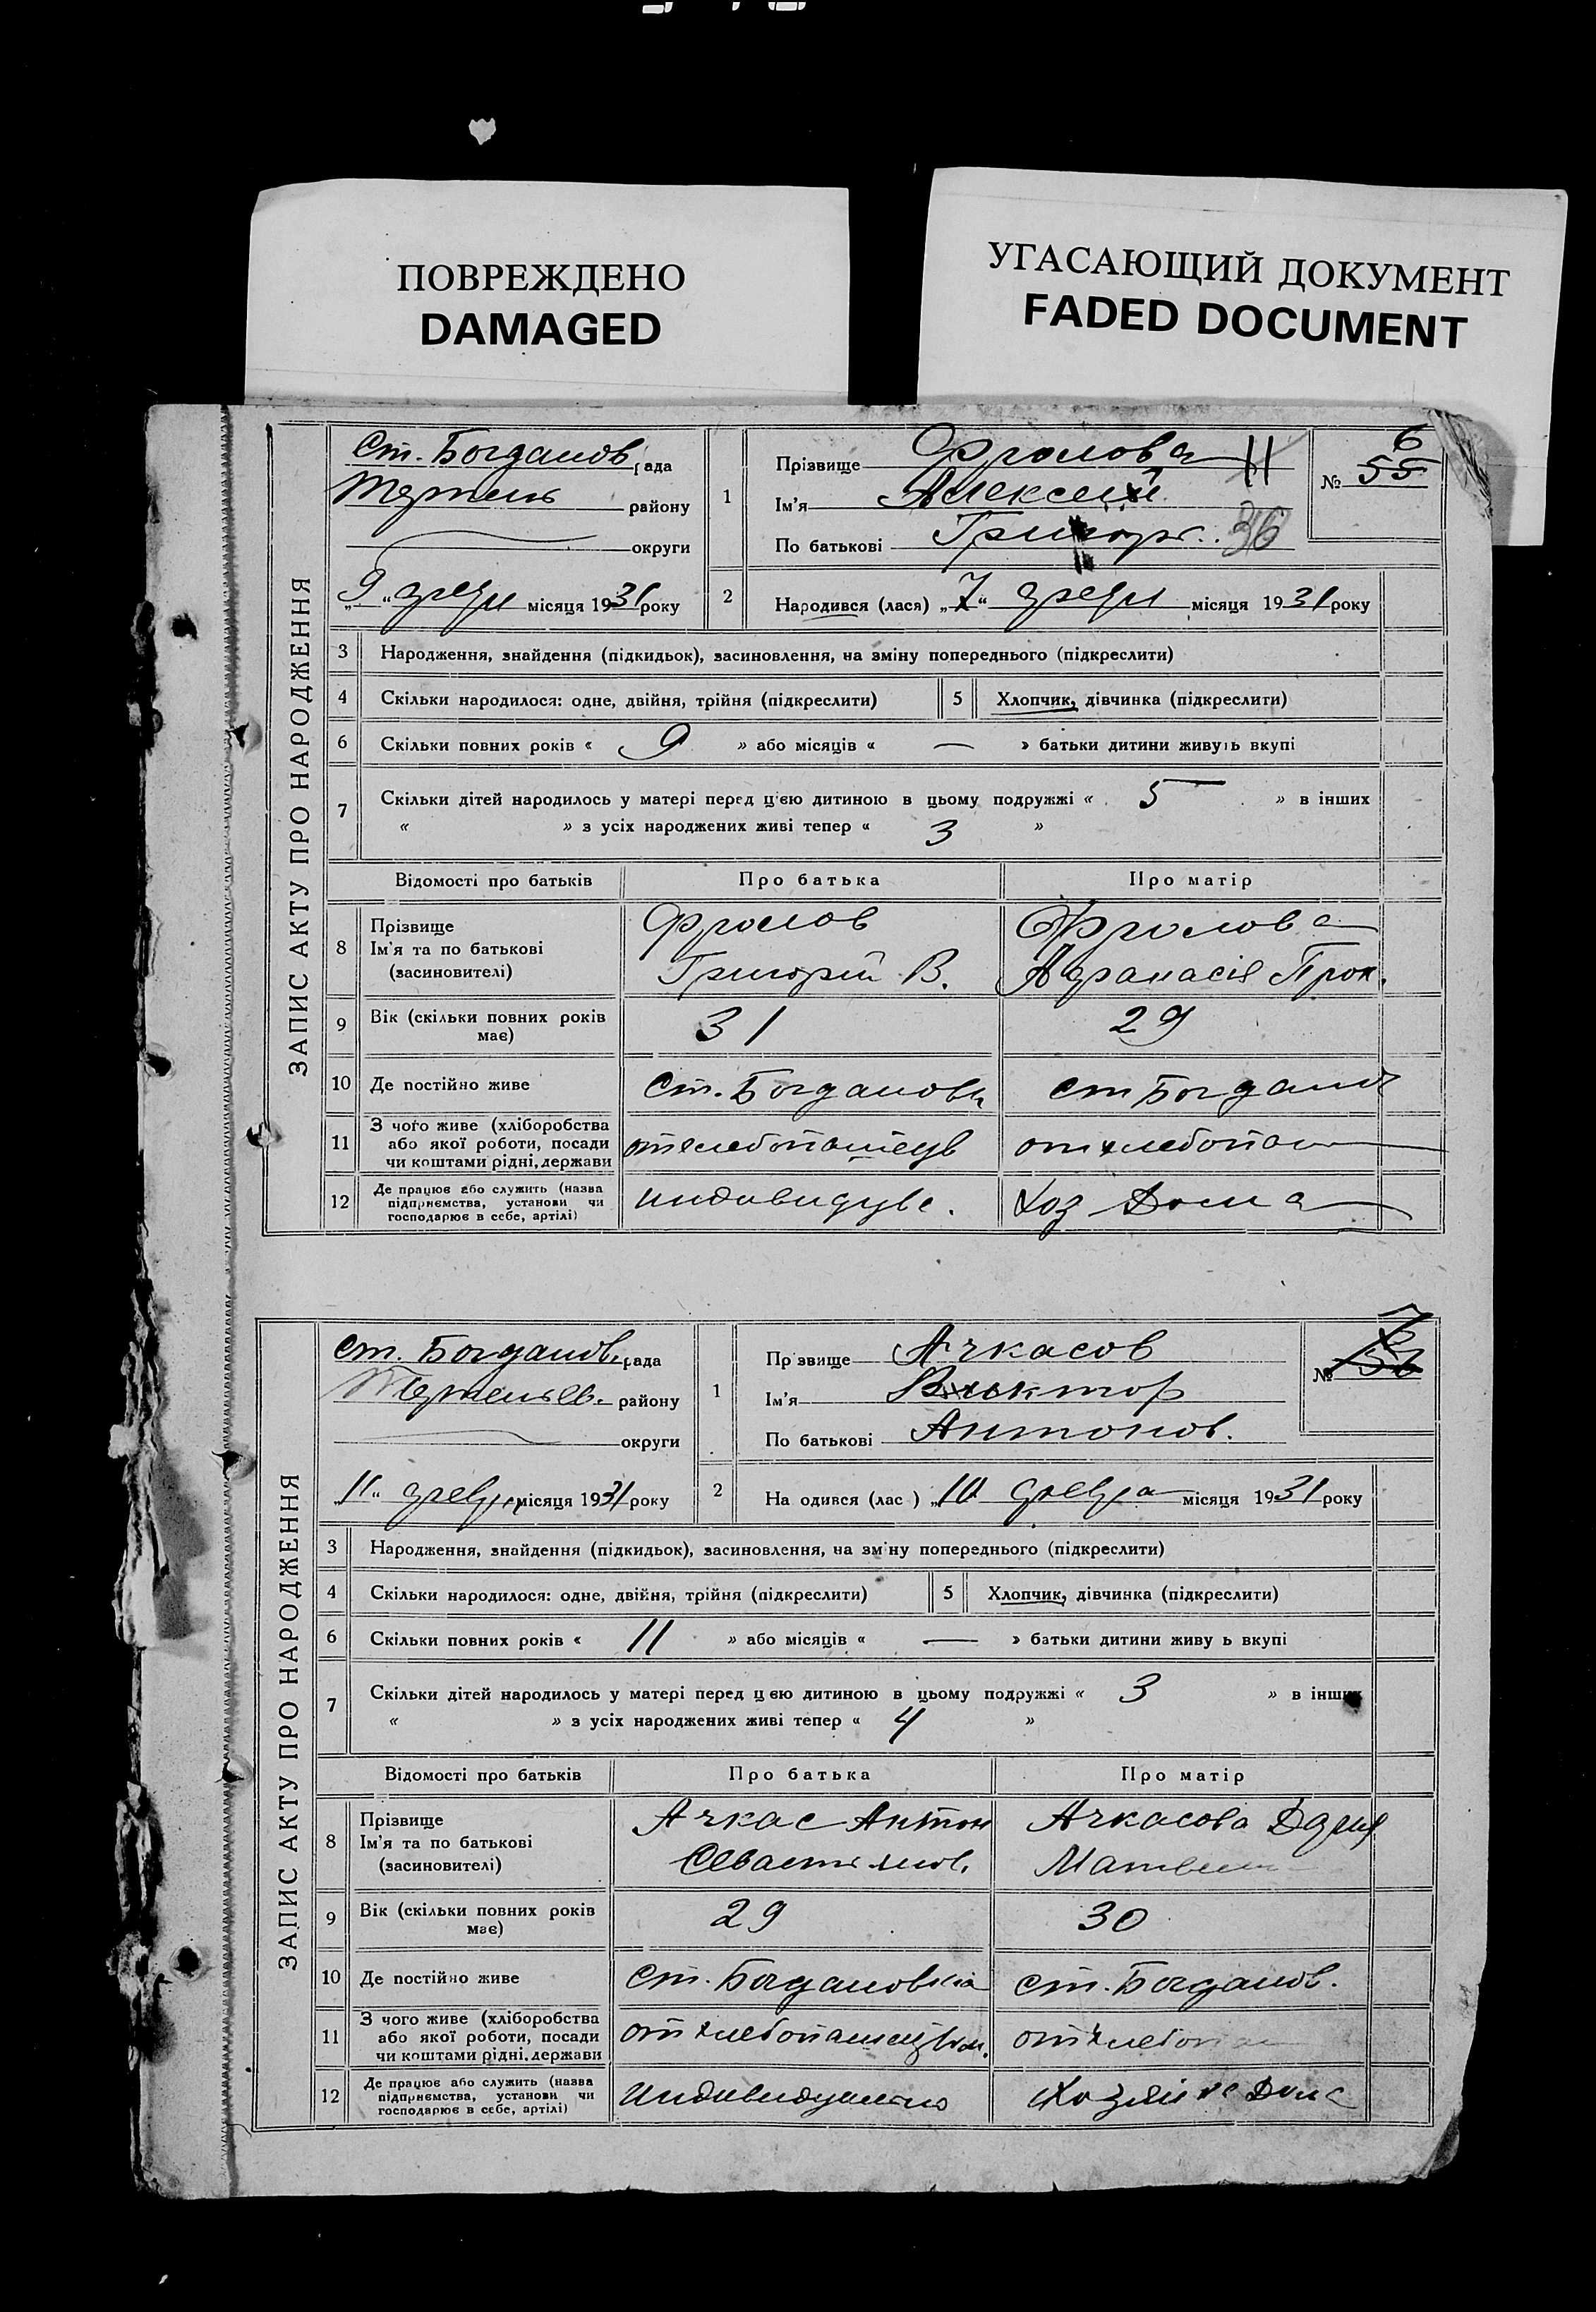 ПОВРЕЖДЕНО
DAMAGED
УГАСАЮЩИЙ ДОКУМЕНТ
FADED DOCUMENT
ЗАПИС АКТУ ПРО НАРОДЖЕННЯ
Ст. Богданов рада
району
округи
„9“ місяця 1931 року
1
Прізвище Фролова
Ім'я Алексей
По батькові Григор. 36
№ 55 6
2
Народився (лася) „7“ місяця 1931 року
3 Народження, знайдення (підкидьок), засиновлення, на зміну попереднього (підкреслити)
4 Скільки народилося: одне, двійня, трійня (підкреслити) 5 Хлопчик, дівчинка (підкреслити)
6 Скільки повних років « 9 » або місяців « — » батьки дитини живуть вкупі
7 Скільки дітей народилось у матері перед цією дитиною в цьому подружжі « 5 » в інших
« » з усіх народжених живі тепер « 3 »
Відомості про батьків Про батька Про матір
8 Прізвище
Ім'я та по батькові
(засиновителі)
Фролов
Григорій В.
Фролова
Афанасія Прок.
9 Вік (скільки повних років має) 31 29
10 Де постійно живе Ст. Богдановк ст Богданов
11 З чого живе (хліборобства
або якої роботи, посади
чи коштами рідні, держави
от хлебопашецв от хлебопаш
12 Де працює або служить (назва
підприємства, установи чи
господарює в себе, артілі)
индивидуал. хоз Дома
ЗАПИС АКТУ ПРО НАРОДЖЕННЯ
Ст. Богданов. рада
району
округи
„11“ місяця 1931 року
1
Прізвище Ачкасов
Ім'я Виктор
По батькові Антонов.
№ 56 7
2
Народився (лас ) „10 февра місяця 1931 року
3 Народження, знайдення (підкидьок), засиновлення, на зміну попереднього (підкреслити)
4 Скільки народилося: одне, двійня, трійня (підкреслити) 5 Хлопчик, дівчинка (підкреслити)
6 Скільки повних років « 11 » або місяців « — » батьки дитини живу ь вкупі
7 Скільки дітей народилось у матері перед цією дитиною в цьому подружжі « 3 » в інших
« » з усіх народжених живі тепер « 4 »
Відомості про батьків Про батька Про матір
8 Прізвище
Ім'я та по батькові
(засиновителі)
Ачкас Антон
Севастьянов.
Ачкасова Дария
Матвеев
9 Вік (скільки повних років має) 29 30
10 Де постійно живе ст. Богдановка ст. Богданов.
11 З чого живе (хліборобства
або якої роботи, посади
чи коштами рідні, держави
от хлебопашецтва. от хлебопа
12 Де працює або служить (назва
підприємства, установи чи
господарює в себе, артілі)
индивидуально Хозяйка Дома